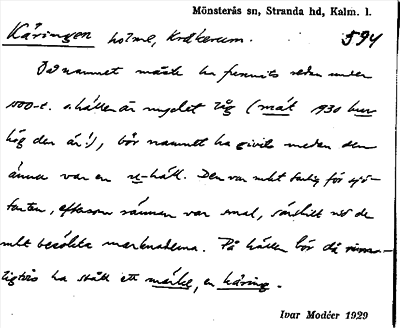 Mönsterås sn, Stranda hd, Kalm. l.
Käringen holme, Kråkerum. 594
Då namnet måste ha funnits redan under
1000-t. o. hällen är mycket låg (mät 1930 hur
hög den är!), bör namnet ha givits medan den
ännu var en häll. Den var mkt farlig för sjö-
farten, eftersom rännan var smal, särskilt vid de
mkt besökta marknaderna. På hällen bör då
ha stått ett märke, en käring.
Ivar Modéer 1929